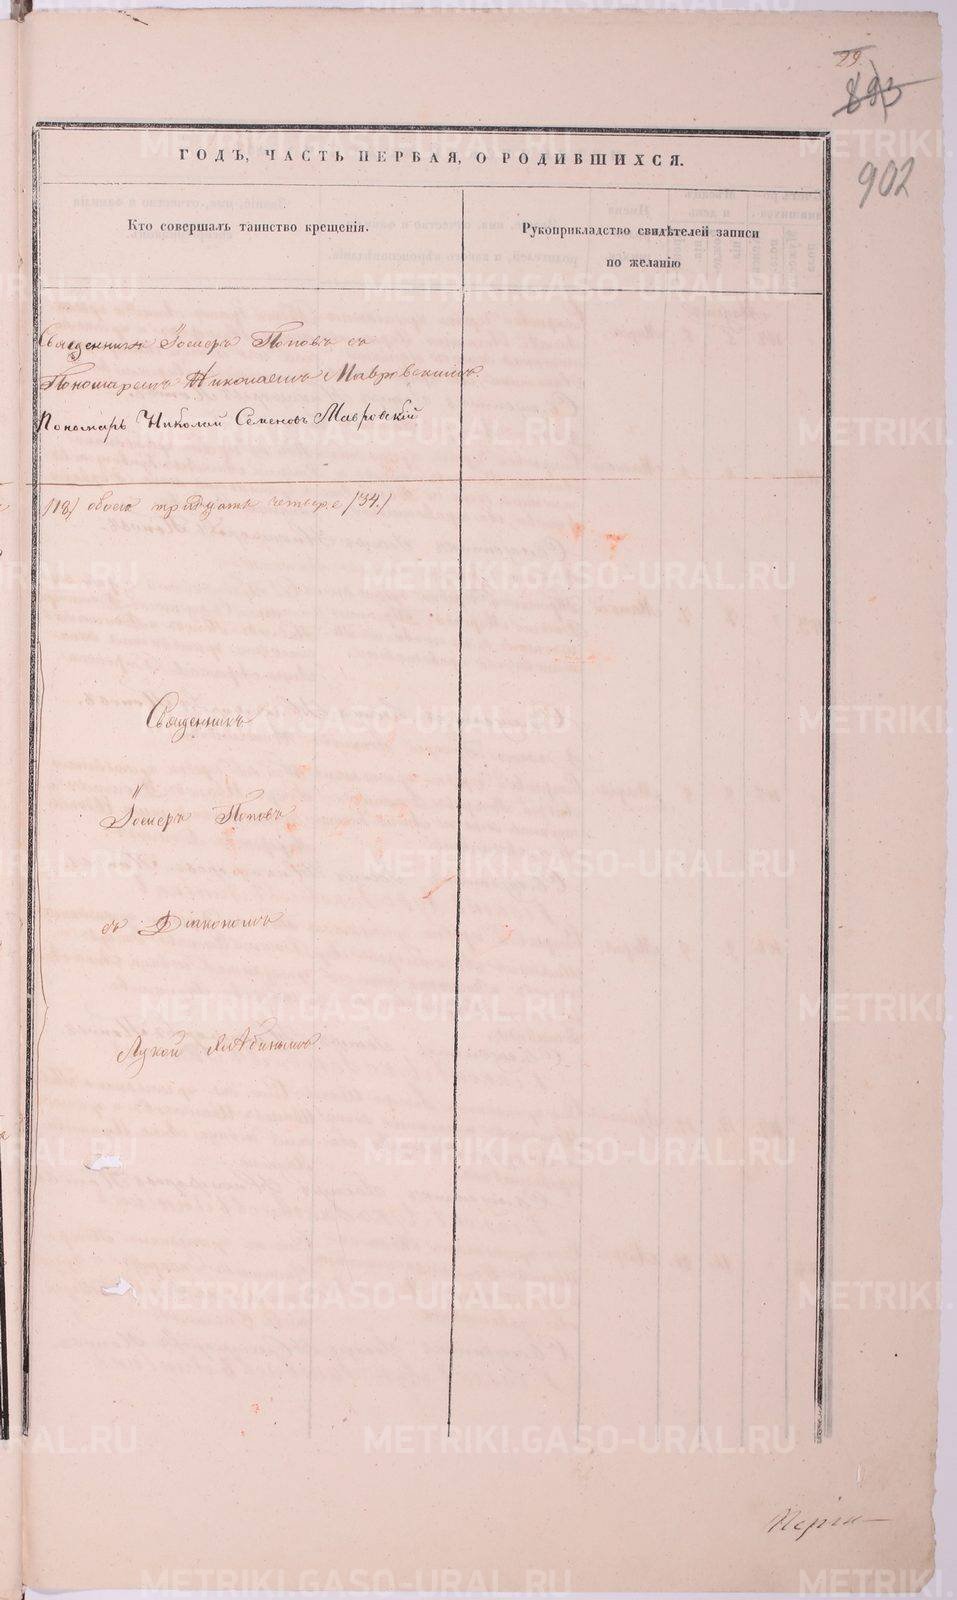 29.
893
902
ГОДЪ, ЧАСТЬ ПЕРВАЯ, О РОДИВШИХСЯ.
Кто совершалъ таинство крещенія.
Рукоприкладство свидѣтелей записи
по желанію
Священникъ Іосифъ Поповъ съ
Пономаремъ Николаемъ Мавровскимъ.
Пономарь Николай Семеновъ Мавровскій
/18/ обоего тридцать четвере /34./
Священникъ
Іосифъ Поповъ
съ Діакономъ
Лукой
METRIKI.GASO-URAL.RU